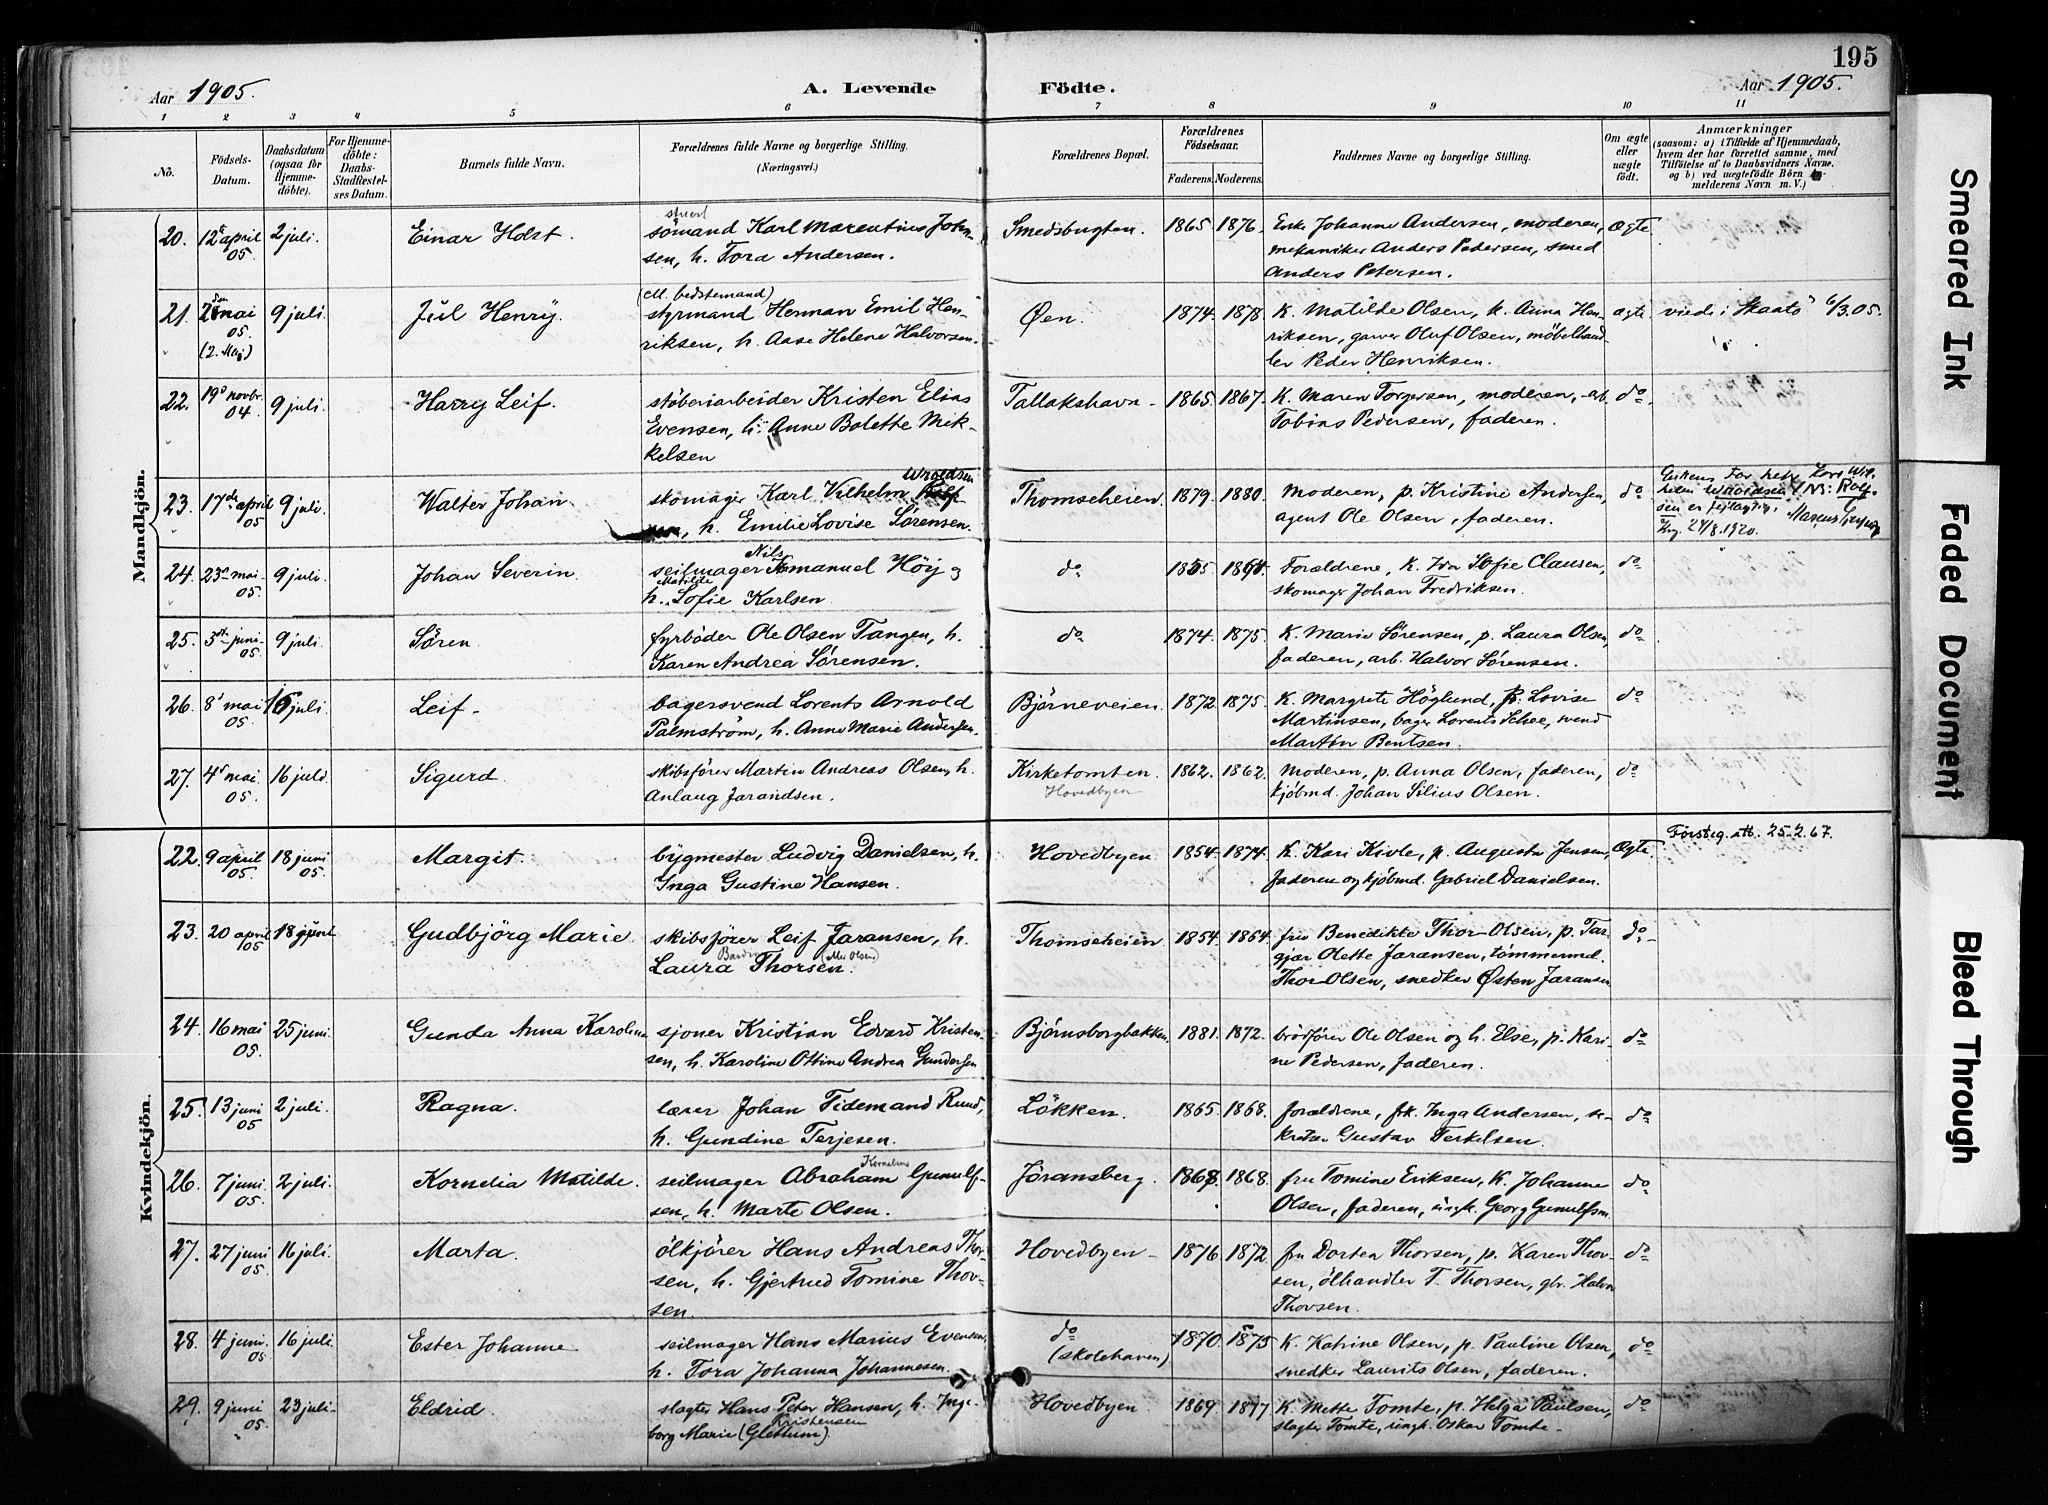 195
Aar 1905. A. Levende Födte. Aar 1905.
1 2 3 4 5 6 7 8 9 10 11
No. Födsels-Datum. Daabsdatum (ogsaa för Hjemmedöbte). For Hjemmedöbte: Daabs-Stadfæstelses Datum. Barnets fulde Navn. Forældrenes fulde Navne og borgerlige Stilling. (Næringsvei.) Forældrenes Bopæl. Forældrenes Födselsaar. Faderens. Moderens. Faddernes Navne og borgerlige Stilling. Om ægte eller uægte födt. Anmærkninger (saasom: a) i Tilfælde af Hjemmedaab, hvem der har forrettet samme, med Tilföielse af to Daabsvidners Navne, og b) ved uægtefödte Börn Anmelderens Navn m. V.)
Mandkjön.
20. 12 april 05. 2 juli. Einar Holst. sömand Karl Marentius John-
sen, h. Tora Andersen. Smedsbugten. 1865 1876. Enke Johanne Andersen, moderen,
mekaniker Anders Pedersen, smed
Anders Petersen. ægte
21. mai 05. (2. Maj) 9 juli. Juul Henry. (ell. bedstemand)
styrmand Herman Emil Hen-
riksen, h. Aase Helene Halvorsen. Øen. 1874. 1878. K. Matilde Olsen, k. Anna Hen-
riksen, garver Oluf Olsen, möbelhand-
ler Peder Henriksen. ægte viede i Skaatö 6/3.05.
22. 19 novbr. 04. 9 juli. Harry Leif. stöberiarbeider Kristen Elias
Evensen, h. Anne Bolette Mik-
kelsen Tallakshavn 1865. 1867. K. Maren Torgersen, moderen, arb.
Tobias Pedersen, faderen. do
23. 17de april 05 9 juli. Walter Johan. skomager Karl Vilhelm Wroldsen
h. Emilie Lovise Sørensen. Thomseheien. 1879. 1880. Moderen, p. Kristine Andersen,
agent Ole Olsen, faderen. do
24. 23 mai 05. 9 juli. Johan Severin. seilmager Nils Emanuel Höy og
h. Matilde Sofie Karlsen. do Forældrene, K. Sofie Clausen,
skomager Johan Fredriksen. do
25. 3 juni 05. 9 juli. Sören. fyrböder Ole Olsen Tangen, h.
Karen Andrea Sørensen. do 1874. 1875. K. Marie Sørensen, p. Laura Olsen,
faderen, arb. Halvor Sørensen. do
26. 8 mai 05. 16 juli. Leif. bagersvend Lorents Arnold
Palmström, h. Anne Marie Andersen. Bjørneveien. 1872 1875. K. Margrete Höglund, p. Lovise
Martinsen, bager Lorents, svend
Martin Bentsen. do
27. 4 mai 05. 16 juli. Sigurd. skibsförer Martin Andreas Olsen, h.
Anlaug Jarandsen. Kirketomten. Hovedbyen 1862. 1862. Moderen, p. Anna Olsen, faderen,
kjöbmd. Johan Silius Olsen. do
Kvindekjön.
22. 9 april 05. 18 juni 05. Margit. bygmester Ludvig Danielsen, h.
Inga Gustine Hansen. Hovedbyen 1854. 1874. K. Kari Kivle, p. Augusta Jensen,
faderen og kjöbmd. Gabriel Danielsen. Ægte Førsteg. att. 25-2.67.
23. 20 april 05 18 juni Gudbjörg Marie. skibsförer Leif Jaransen, h.
Laura Thorsen. Thomseheien 1854. 1864. fru Benedikte Thor-Olsen, p. Tar-
gjær Olette Jaransen, tömmermd.
Thor Olsen, snedker Østen Jaransen do
24. 16 mai 05. 25 juni. Gunda Anna Karoline sjoner Kristian Edvard Kristen-
sen, h. Karoline Ottine Andrea Gundersen Bjørnsborgbakken. 1881. 1872. brödförer Ole Olsen og h. Else, p. Kari-
ne Pedersen, faderen. do
25. 13 juni 05 2 juli. Ragna. lærer Johan Tidemand Ruud,
h. Gundine Terjesen. Løkken. 1865. 1868. forældrene, frk. Inga Andersen, se-
kretær Gustav Terkelsen. do
26. 7 juni 05. 2 juli. Kornelia Matilde. seilmager Abraham Kornelius Gunulf-
sen, h. Marte Olsen. Jøransberg. 1868. 1868. fru Tomine Eriksen, K. Johanne
Olsen, faderen, ungk. Georg Gunulfsen. do
27. 27 juni 05. 16 juli. Marta. ölkjörer Hans Andreas Thor-
sen, h. Gjertrud Tomine Thor-
sen. Hovedbyen 1876. 1872. fru Dortea Thorsen, p. Karen Thor-
sen, ölhandler T. Thorsen, gbr. Halvor
Thorsen. do
28. 4 juni 05 16 juli. Ester Johanne seilmager Hans Marius Evensen,
h. Tora Johanna Johannesen. do (skolehaven) 1870. 1875 K. Katrine Olsen, p. Pauline Olsen,
snedker Laurits Olsen, faderen. do
29. 9 juni 05. 23 juli. Eldrid. slagter Hans Peter Hansen, h. Inge-
borg Marie Kristensen (Glettum). Hovedbyen. 1869. 1877 K. Mette Tomte, p. Helga Paulsen,
slagter Tomte, ungk. Oskar Tomte. do
Smeared Ink
Faded Document
Bleed Through